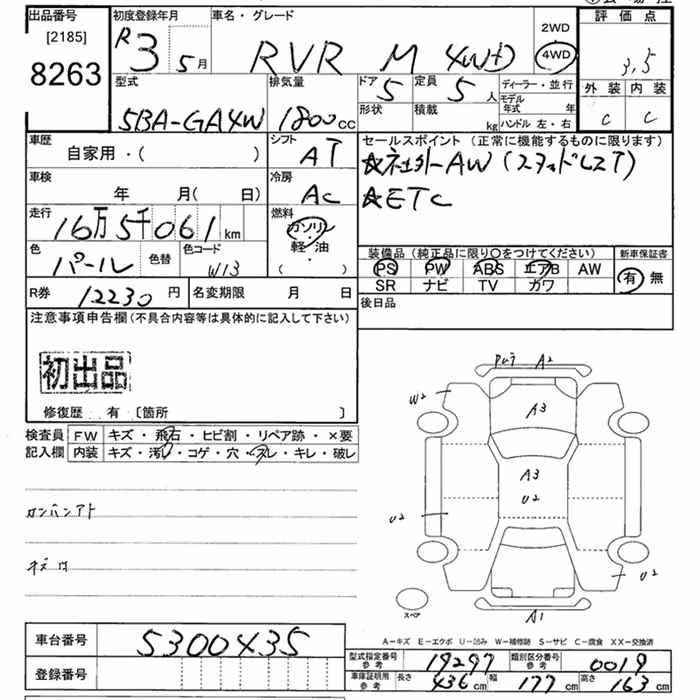 出品番号
[2185]
8263
初度登録年月
R3 5月
車名・グレード
RVR M 4WD
2WD
4WD
評価点
3,5
外装 内装
C C
型式
5BA-GA4W
排気量
1800cc
ドア 5
定員 5人
形状
積載 kg
ディーラー・並行
モデル年式 年
ハンドル 左・右
車歴
自家用・( )
シフト
AT
セールスポイント(正常に機能するものに限ります)
★社外AW(スタッドレスT)
★ETC
車検
年 月(日)
冷房
AC
走行
16万5千061km
燃料
ガソリン
軽・油
( )
色
パール
色替
色コード
W13
装備品(純正品に限り○をつけてください)
PS PW ABS エアB AW
SR ナビ TV カワ
新車保証書
有 無
R券 12230円
名変期限 月 日
後日品
注意事項申告欄(不具合内容等は具体的に記入して下さい)
初出品
修復歴 有〔箇所 〕
検査員記入欄
FW キズ・飛石・ヒビ割・リペア跡・×要
内装 キズ・汚レ・コゲ・穴・スレ・キレ・破レ
カンバンアト
A2
W2
A3
A3
U2
U2
U2
A1
スペア
A-キズ E-エクボ U-凹み W-補修跡 S-サビ C-腐食 XX-交換済
車台番号 5300435
登録番号
型式指定番号 参考 19297
類別区分番号 参考 0019
車庫証明用 参考 長さ 436cm 幅 177cm 高さ 163cm